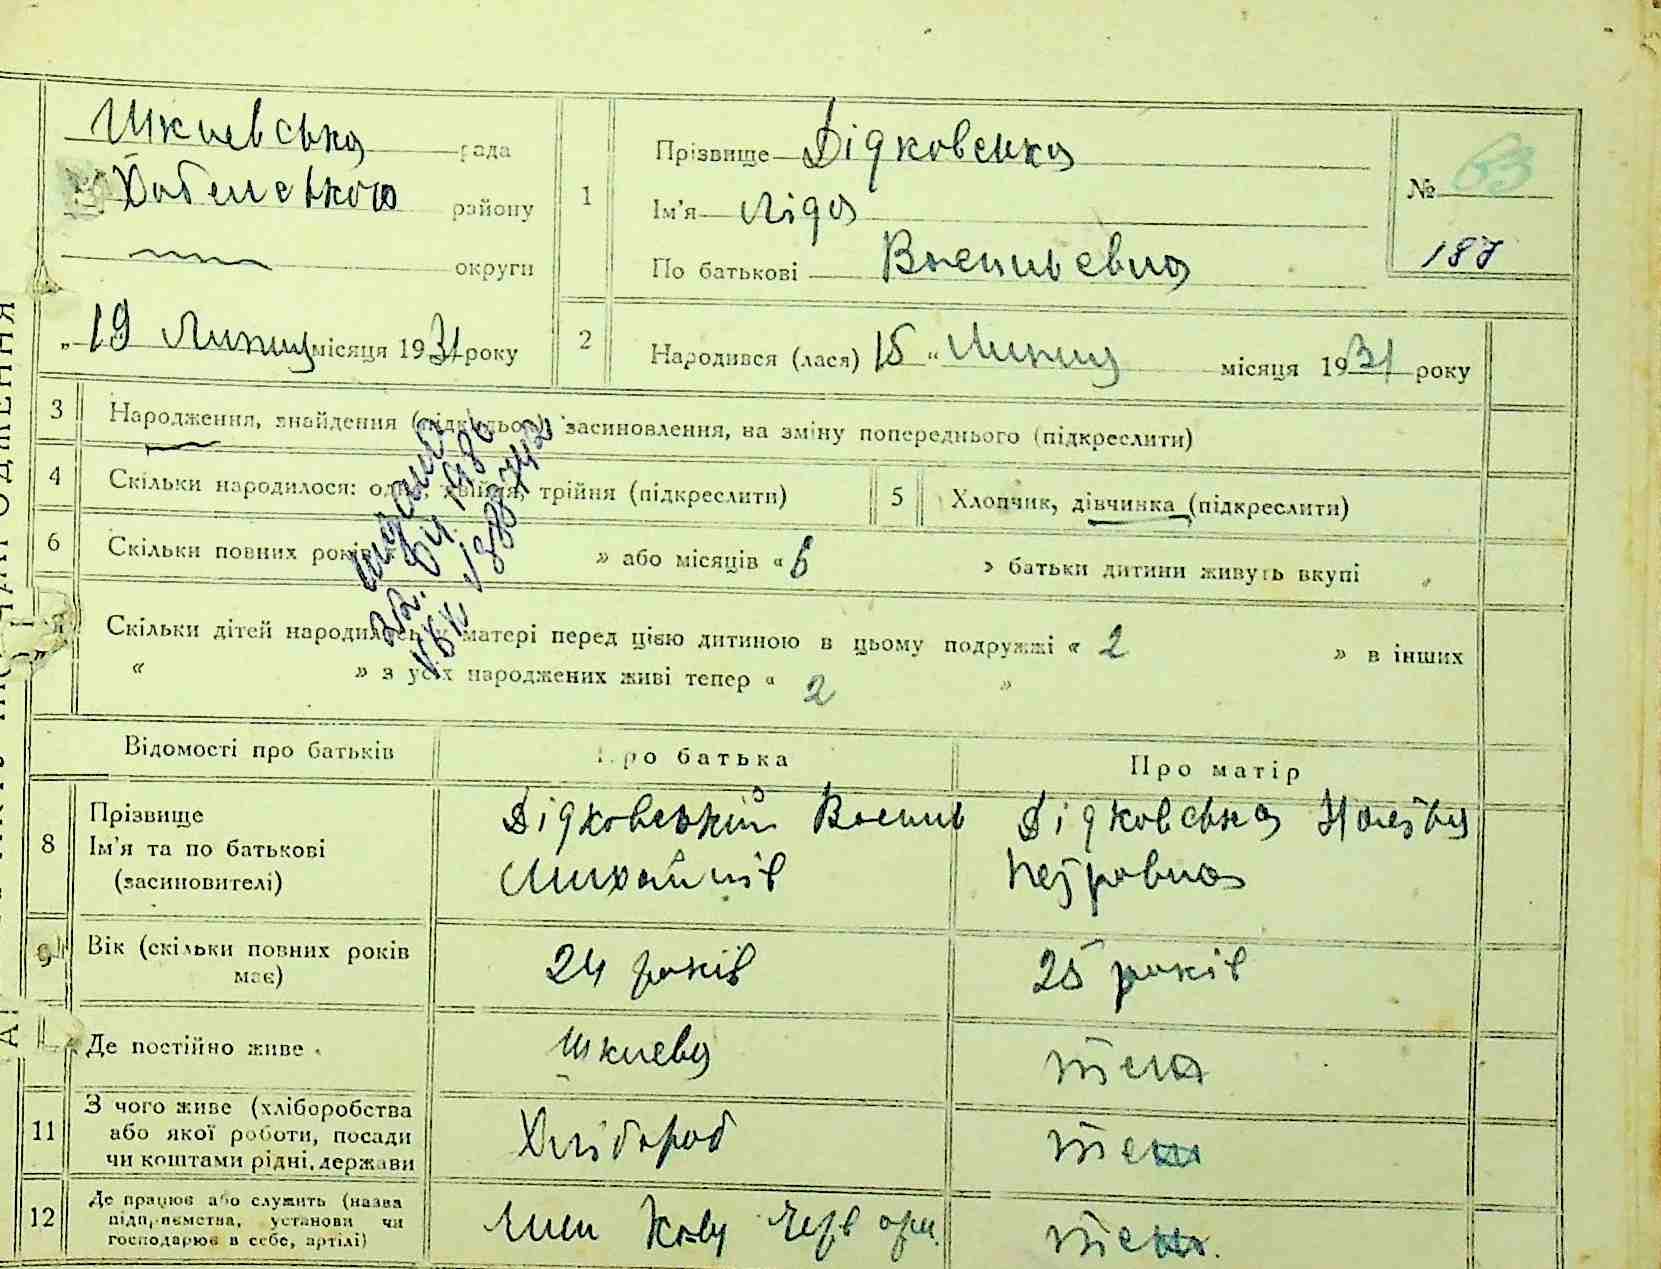 Шкневська рада
Хабенського району
округи
„ 19 Липня місяця 1931 року
1
Прізвище Дідковська
Ім'я Ліда
По батькові Васильевна
№ 63
187
2
Народився (лася) 15 “ Липня місяця 1931 року
3 Народження, знайдення (підкидьок), засиновлення, на зміну попереднього (підкреслити)
4 Скільки народилося: одно, двійня, трійня (підкреслити)
5 Хлопчик, дівчинка (підкреслити)
6 Скільки повних років » або місяців « 6 » батьки дитини живуть вкупі
7 Скільки дітей народилось у матері перед цією дитиною в цьому подружжі « 2 » в інших
« » з усіх народжених живі тепер « 2 »
Відомості про батьків
Про батька
Про матір
8
Прізвище
Ім'я та по батькові
(засиновителі)
Дідковський Василь
Михайлів
Дідковська
Петровна
9
Вік (скільки повних років
має)
24 років
25 років
Де постійно живе
Шкнева
тена
11
З чого живе (хліборобства
або якої роботи, посади
чи коштами рідні, держави
Хлібороб
12
Де працює або служить (назва
підприємства, установи чи
господарює в себе, артілі)